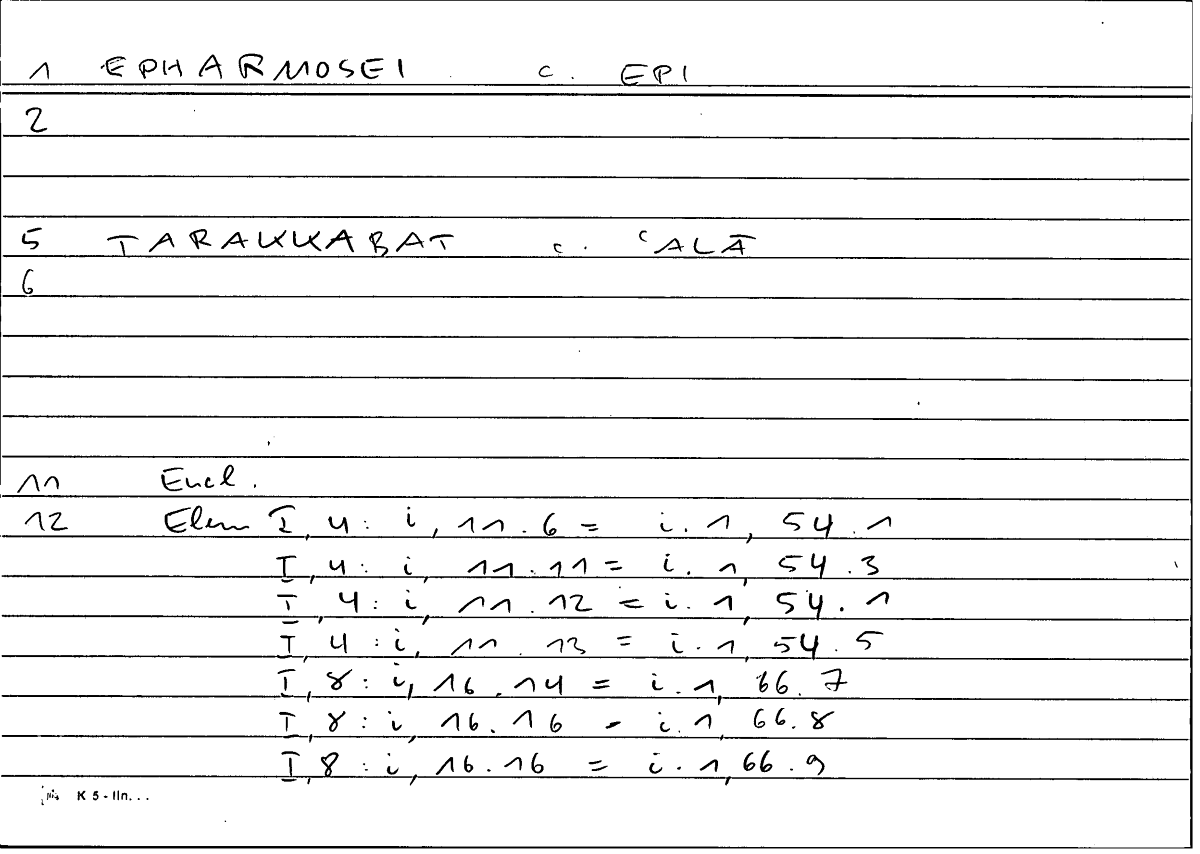 1 EPHARMOSEI c. EPI
2
5 TARAKKABAT c. ʿALĀ
6
11 Eucl.
12 Elem I, 4: i, 11.6 = i.1, 54.1
I, 4: i, 11.11 = i.1, 54.3
I, 4: i, 11.12 = i.1, 54.1
I, 4: i, 11.13 = i.1, 54.5
I, 8: i, 16.14 = i.1, 66.7
I, 8: i, 16.16 = i.1, 66.8
I, 8: i, 16.16 = i.1, 66.9
K 5 - IIn...